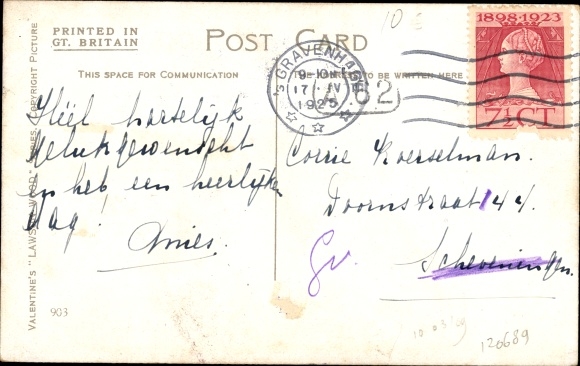 PRINTED IN
GT. BRITAIN
POST CARD
1898-1923
7½ CT
THIS SPACE FOR COMMUNICATION
TO BE WRITTEN HERE
'S GRAVENHAGE
9-10 N
17 IV
1925
62
VALENTINE'S "LAWSON WOOD" SERIES, COPYRIGHT PICTURE
Héél hartelijk
gelukgewenscht
en heb een heerlijken
dag!
Dries.
Corrie Koerselman.
Doornstraat 144.
Gv.
Scheveningen.
903
10
120689